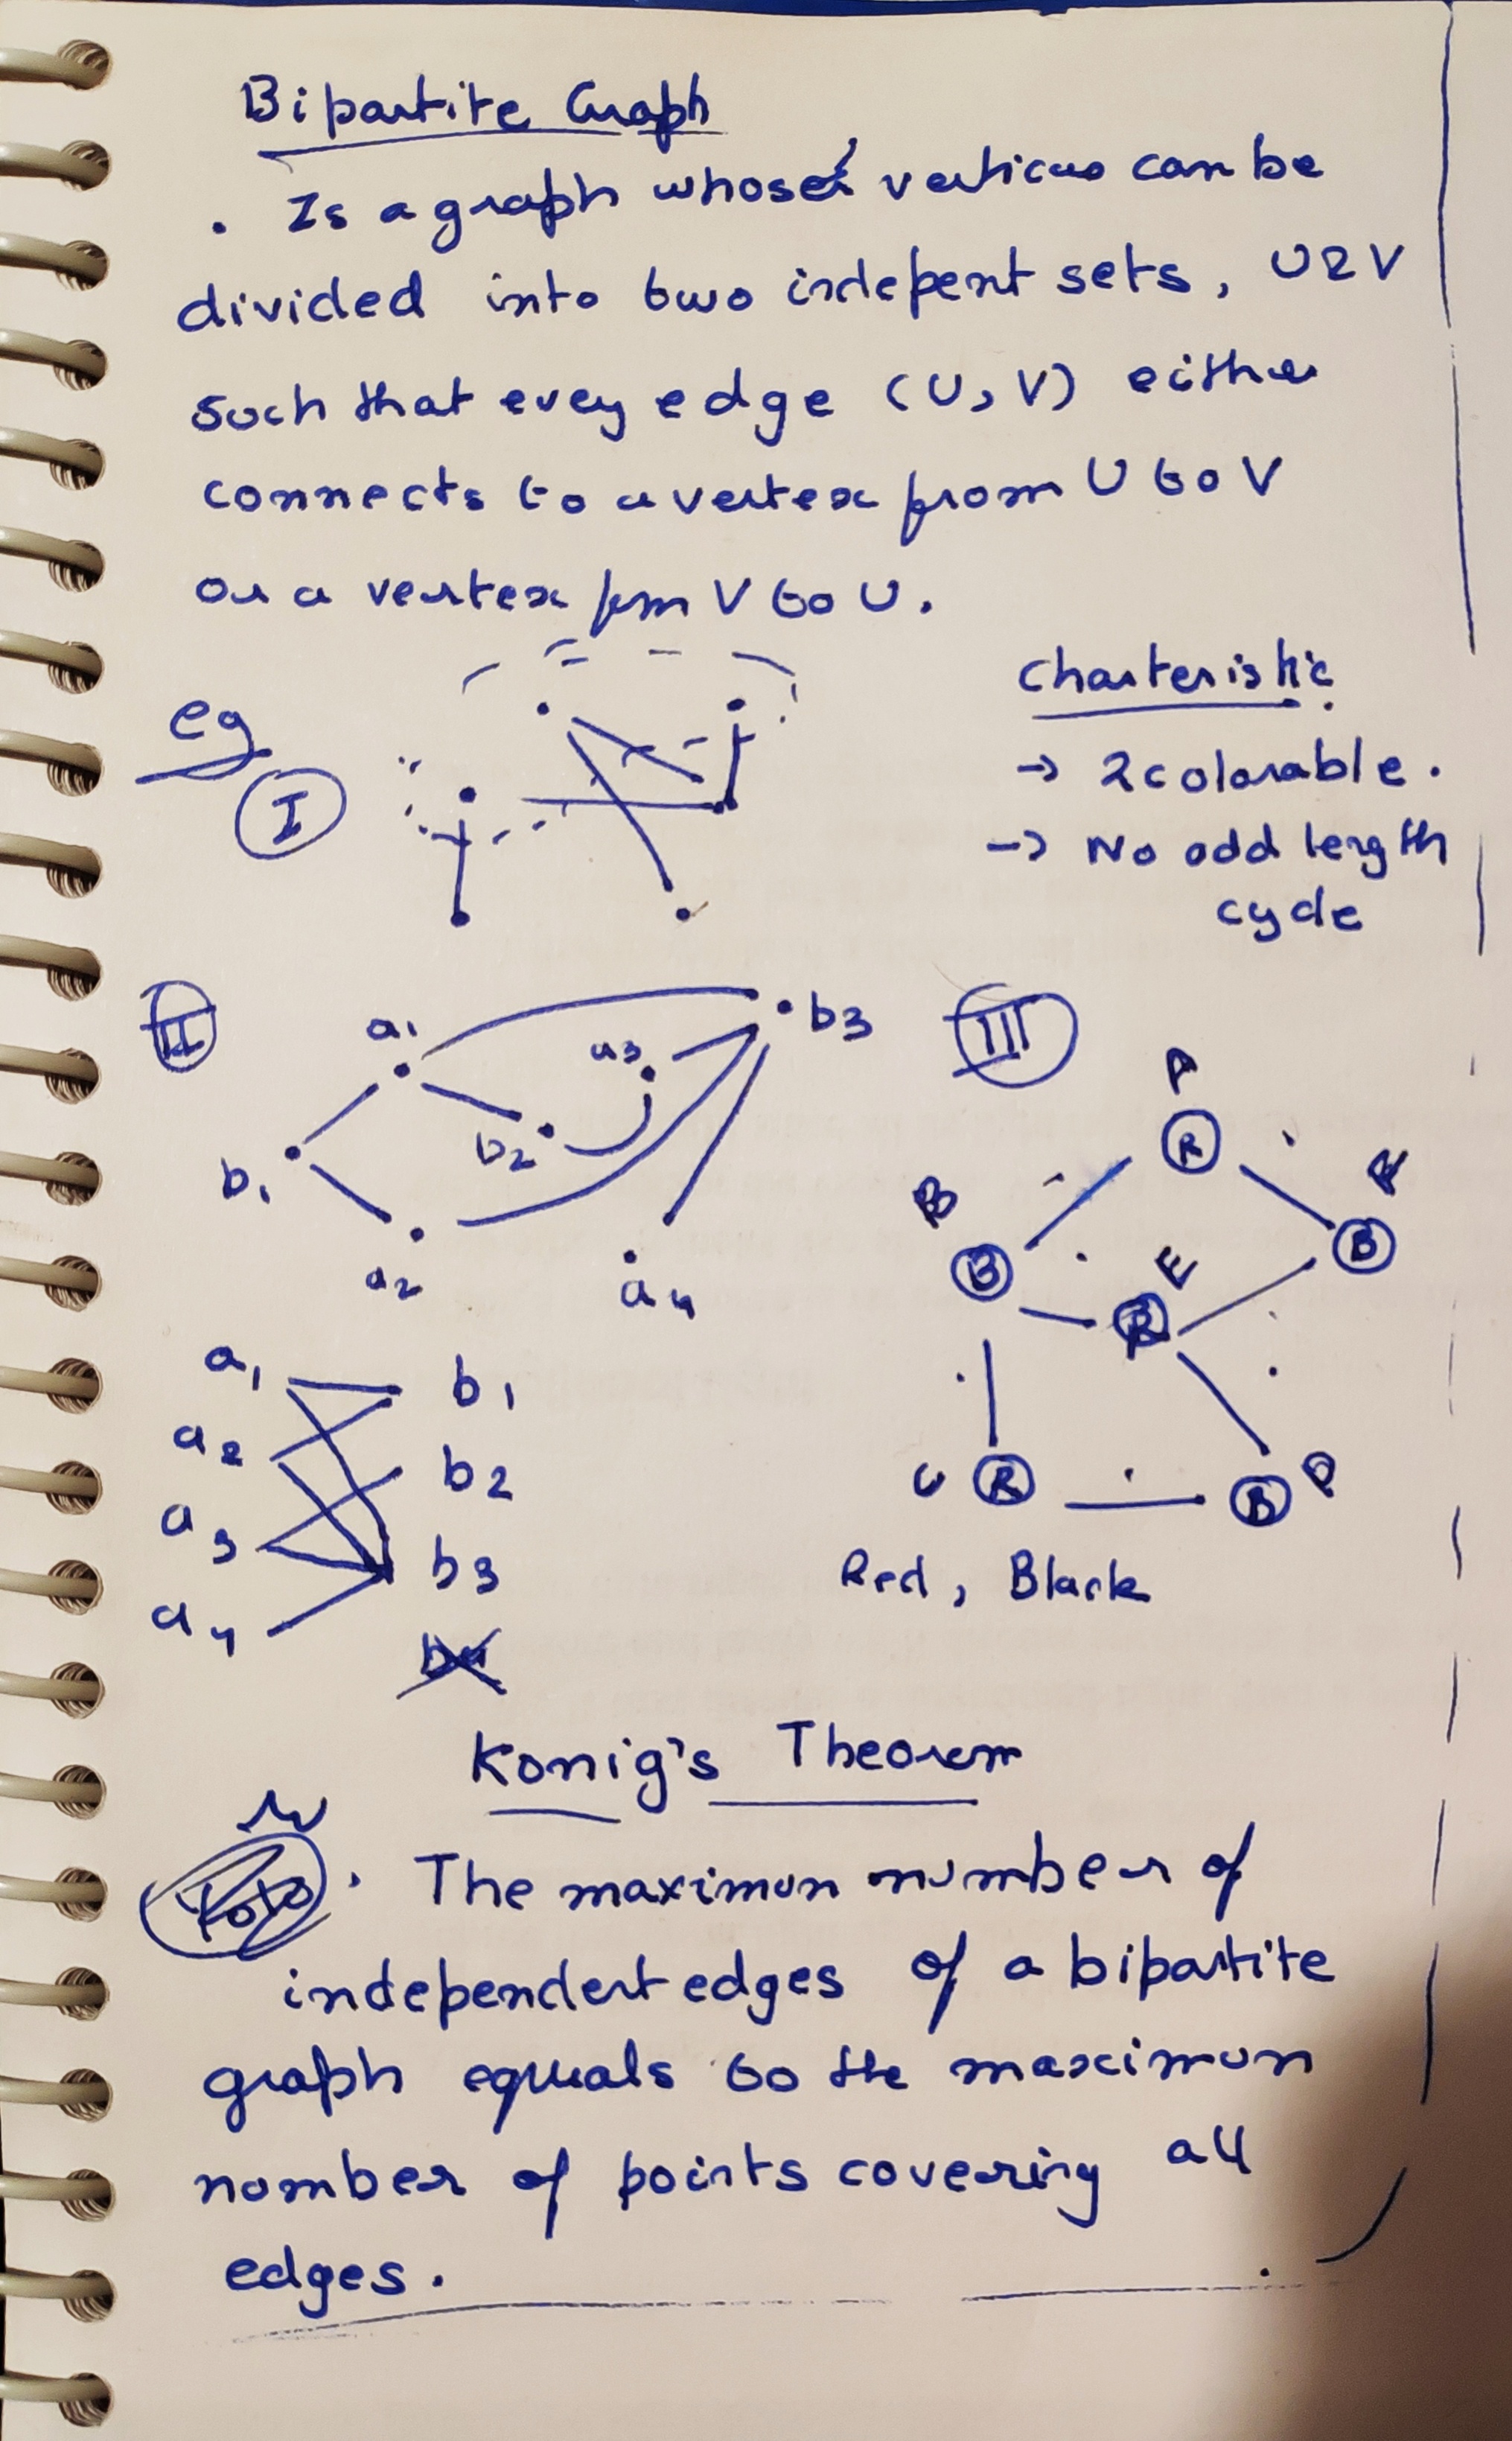 Bipartite Graph
. Is a graph whose verticus can be
divided into two indepent sets, U & V
such that evey edge (U, V) either
connects to a vertex from U to V
or a vertex frm V to U.
eg
Charteristic
I
→ 2 colorable.
→ No odd length
cycle
II
a1
a3
b3
III
b2
b1
a2
a4
A
R
B
F
B
B
E
R
a1 b1
a2 b2
a3 b3
a4
C R
B D
Red, Black
Konig's Theorem
. The maximun number of
independent edges of a bipartite
graph equals to the maximun
number of points covering all
edges.